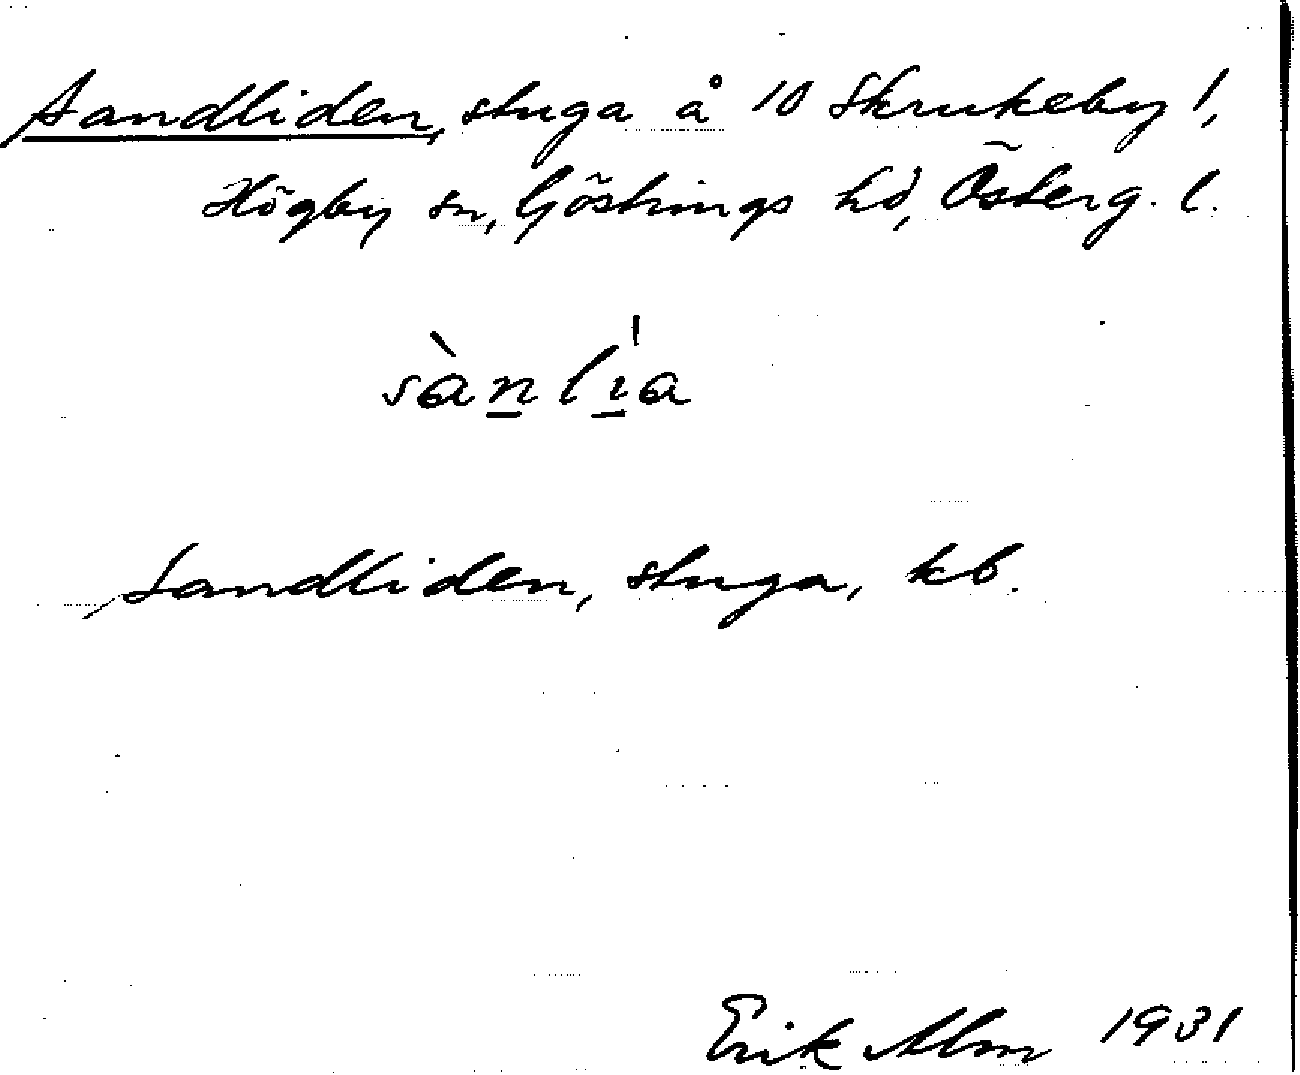 Sandliden, stuga å 10 Skrukeby 1,
Högby sn, Göstrings hd, Österg. l.
sànlìa
Sandliden, stuga, kb.
Erik Alm 1931